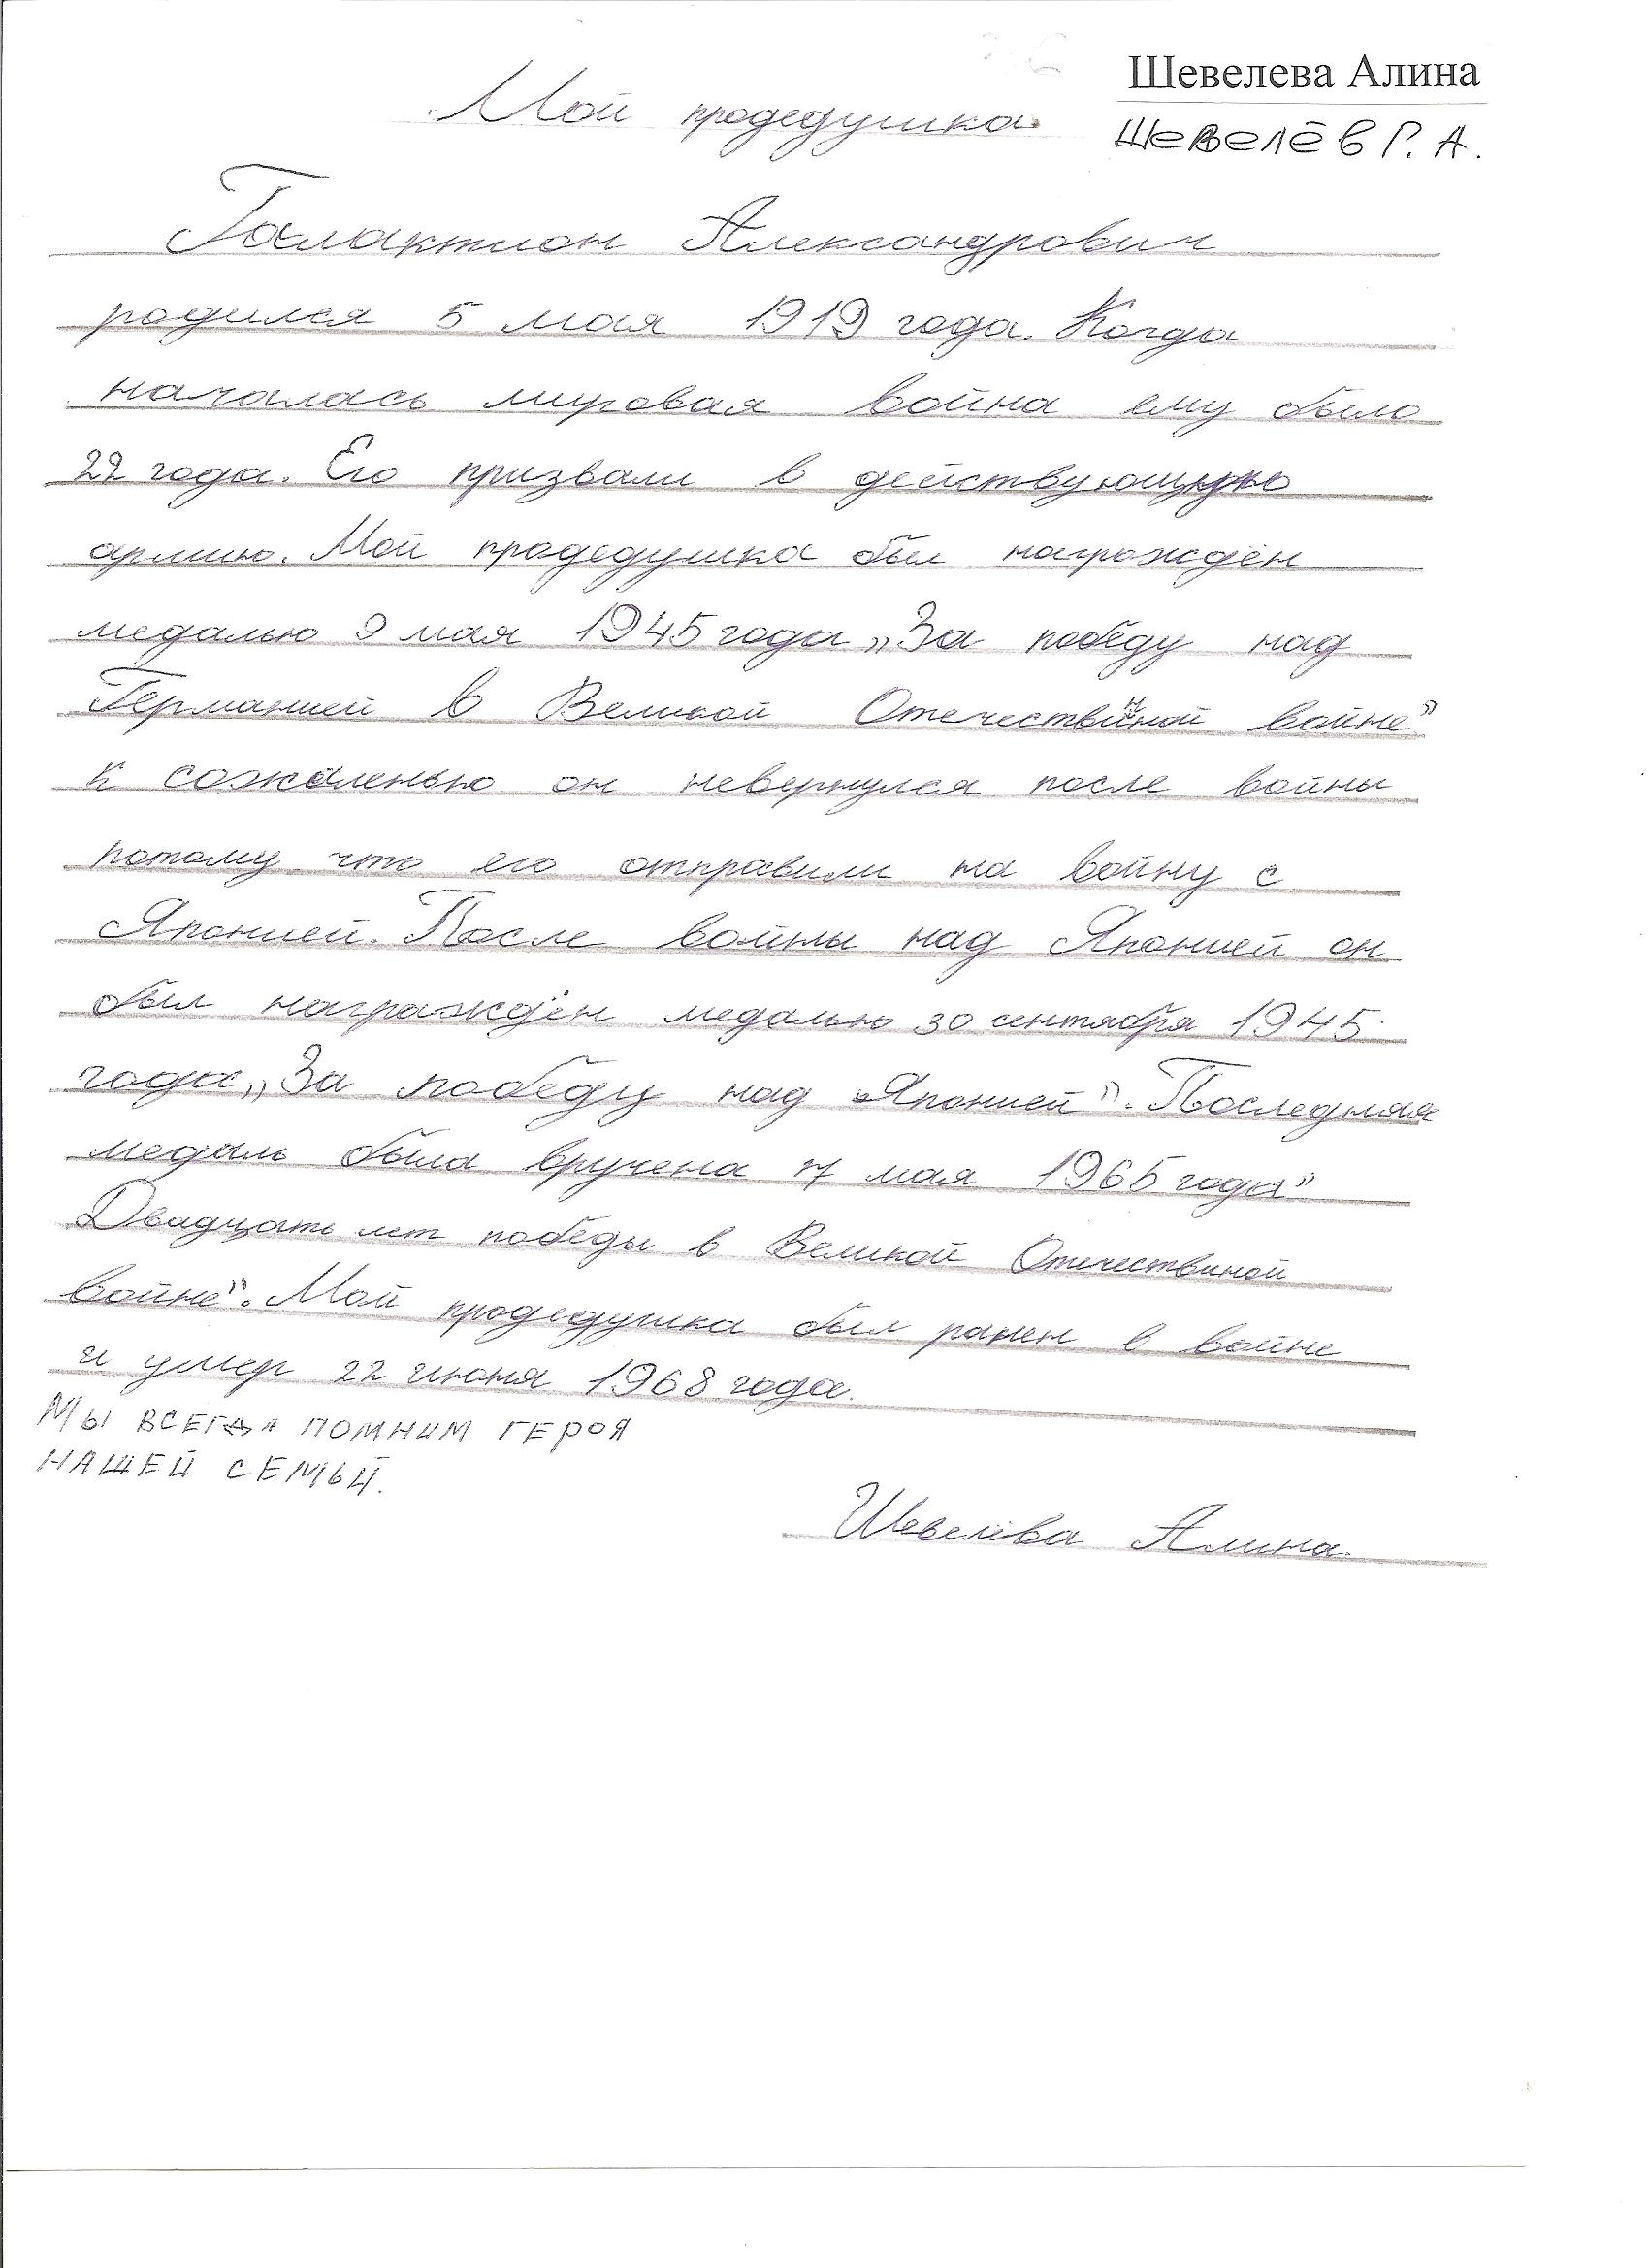 Шевелева Алина
Мой продедушка
Шевелёв Г. А.
Галактион Александрович
родился 5 мая 1919 года. Когда
началась мировая война ему было
22 года. Его призвали в действующую
армию. Мой продедушка был награждён
медалью 9 мая 1945 года „За победу над
Германией в Великой Отечествиной войне”
к сожаленью он невернулся после войны
потому что его отправили на войну с
Японией. После войны над Японией он
был награждён медалью 30 сентября 1945
года „За победу над Японией”. Последняя
медаль была вручена 7 мая 1965 года”
Двадцать лет победы в Великой Отечествиной
войне”. Мой продедушка был ранен в войне
и умер 22 июня 1968 года.
МЫ ВСЕГДА ПОМНИМ ГЕРОЯ
НАШЕЙ СЕМЬИ.
Шевелёва Алина.